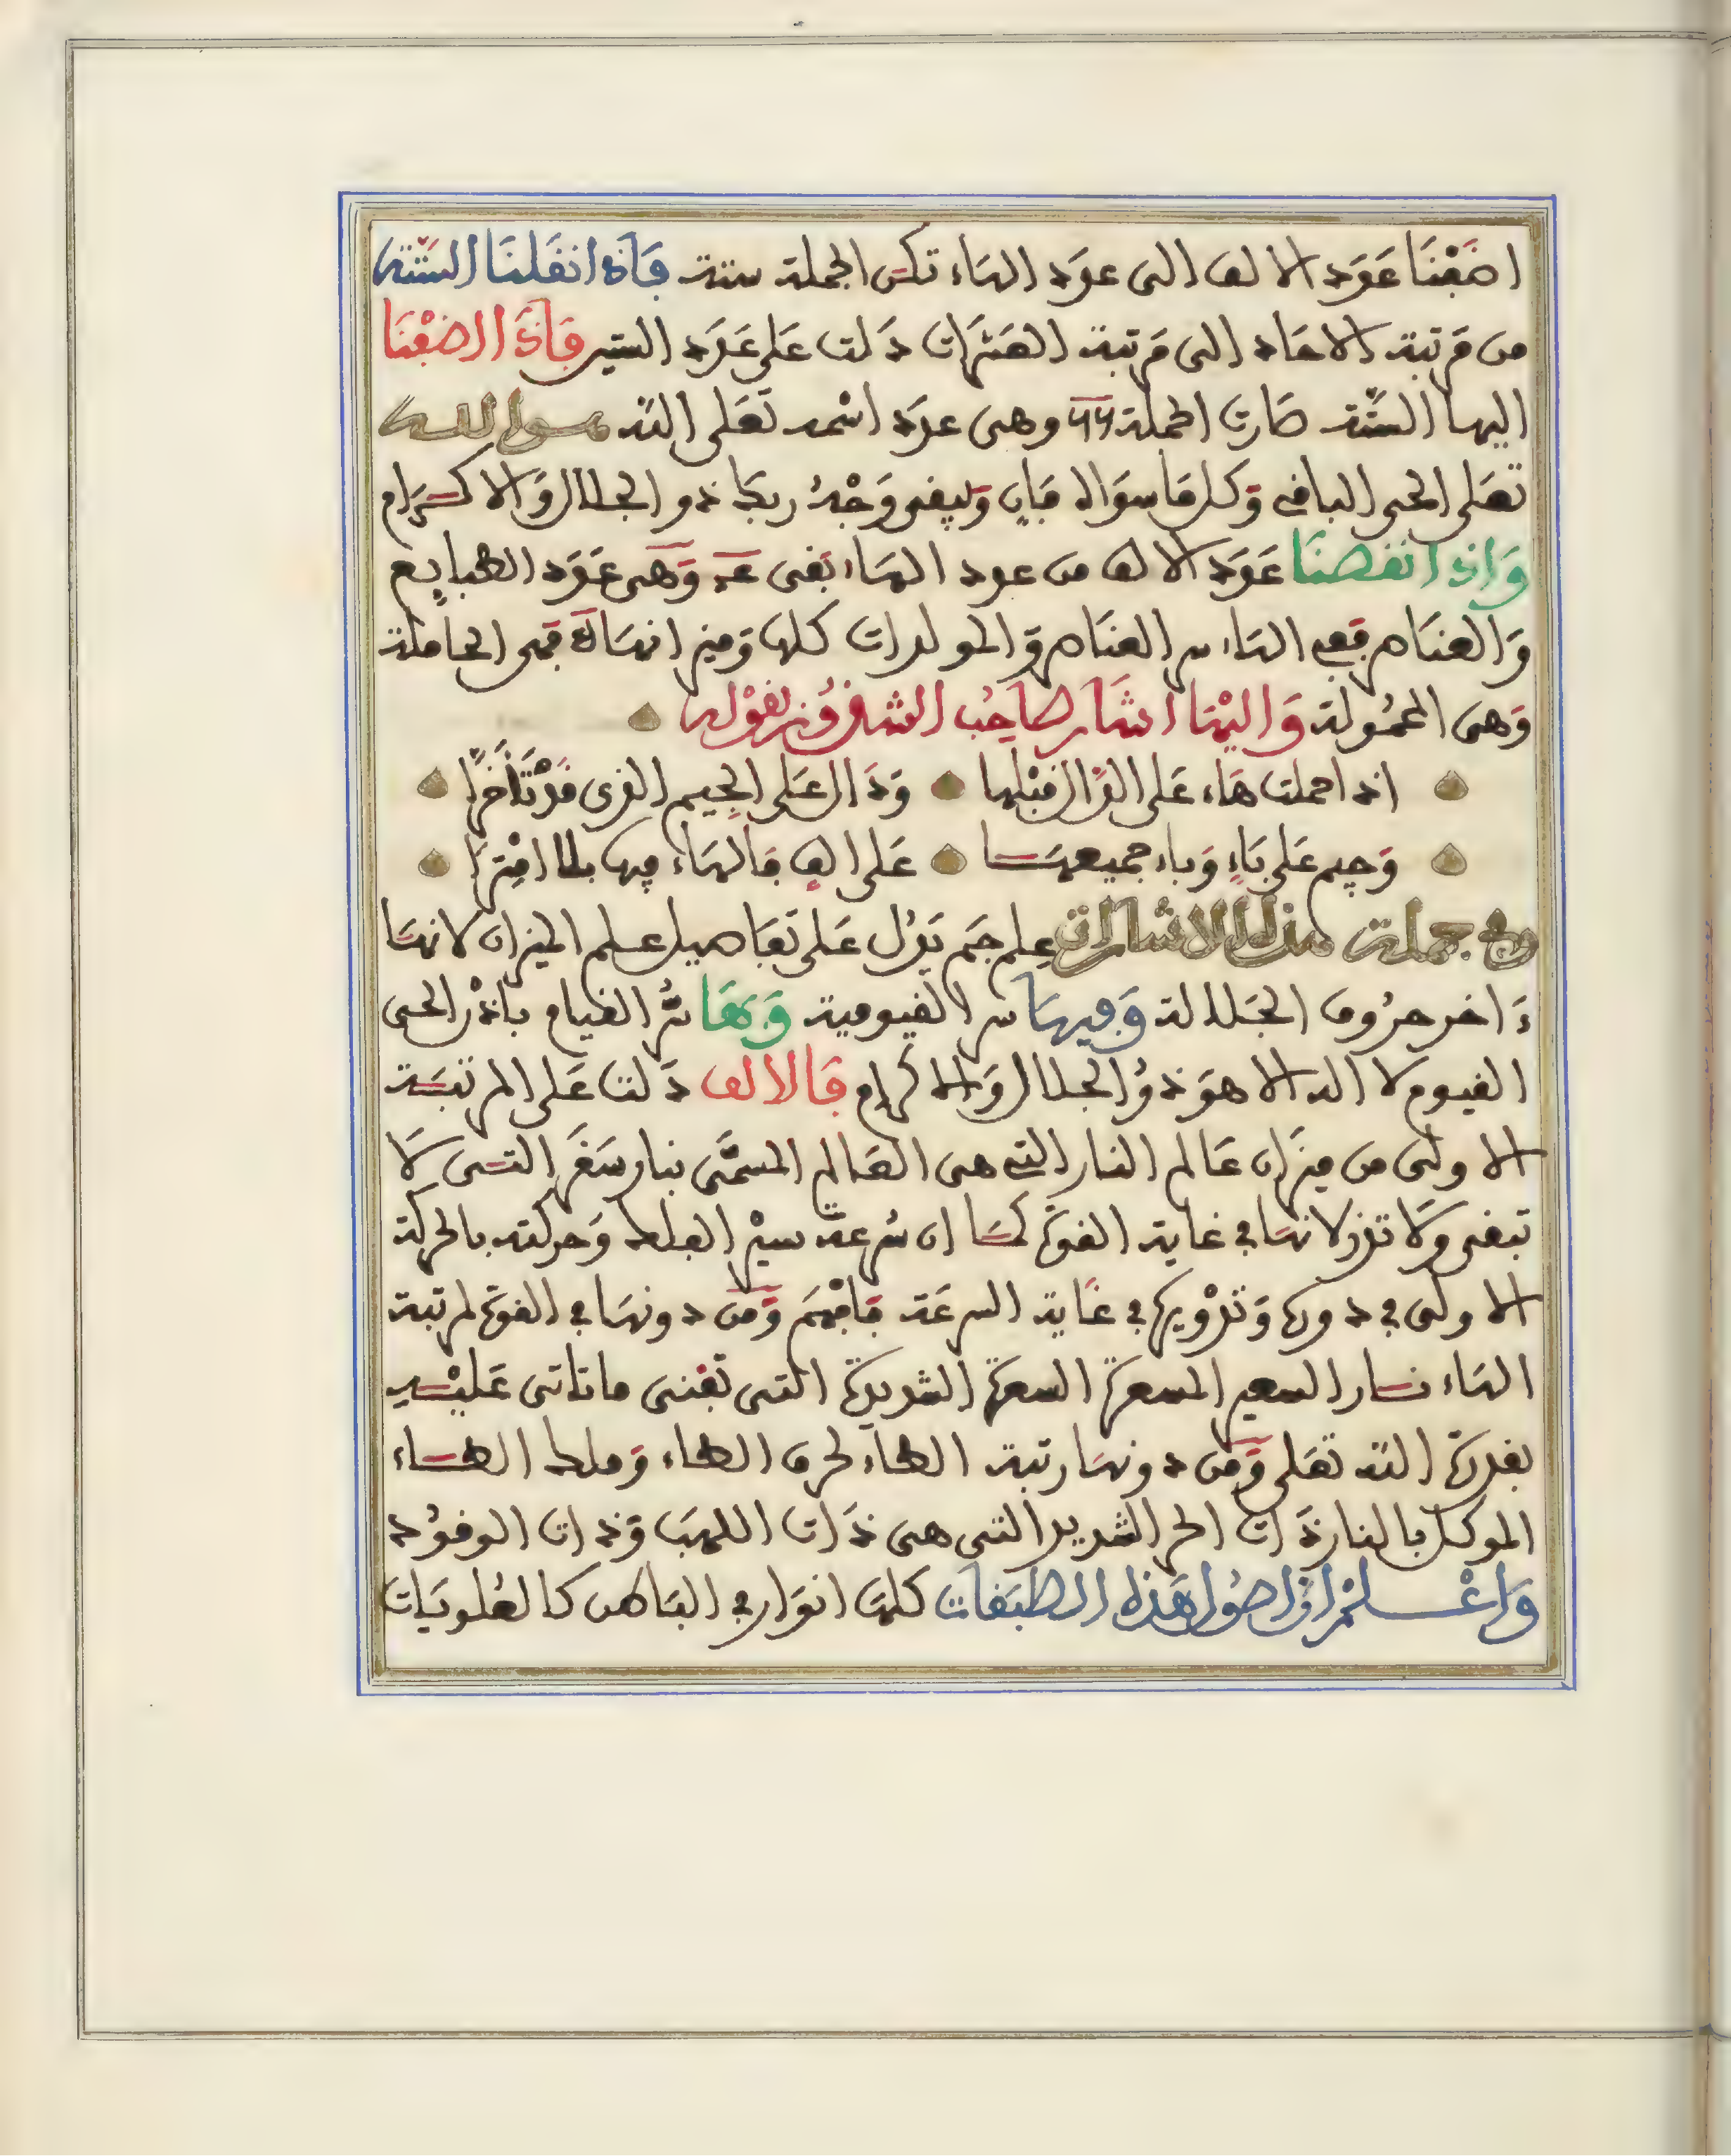 اضفنا عدد الالف الى عدد الهاء تكن الجملة ستة فاذا نقلنا الستة
من مرتبة الاحاد الى مرتبة العشرات دلت على عدد الستين فاذا اضفنا
اليها الستة صارت الجملة 66 وهي عدد اسمه تعلى الله هو الله
تعلى الحي الباقي وكل ما سواه فان ويبقى وجه ربك ذو الجلال والاكرام
واذا نقصنا عدد الالف من عدد الهاء بقى عـد وهي عدد الطبايع
والعناصر ففي الهاء سر العناصر والمولدات كلها وميزانها فهي الحاملة
وهي المحمولة واليها اشار صاحب الشذور بقوله
اذا حملت هاء على الدال قبلها ودال على الجيم الذي قد تأخرا
وجيم على باء وباء جميعها على الف فالهاء فيها بلا امترا
وفي جملة هذه الاشارات علم جم يدل على تفاصيل علم الميزان لانها
ءاخر حروف الجلالة وفيها سر القيومية وبها سر القيام باذن الحي
القيوم لا اله الا هو ذو الجلال والاكرام فالالف دلت على المرتبة
الاولى من ميزان عالم النار التي هي العالم المسمى بنار سقر التي لا
تبقى ولا تذر لانها في غاية القوة كما ان سرعة سير الفلك وحركته بالحركة
الاولى في دوره وتدويره في غاية السرعة فافهم ومن دونها في القوة لمرتبة
الهاء نار السعير المسعرة السعرة الشديدة التي تفنى ما تاتى عليه
بقدرة الله تعلى ومن دونها رتبة الطاء لحرف الطاء وملك الطاء
الموكل بالنار ذات الحر الشديد التي هي ذات اللهب وذات الوقود
واعلم ان اصول هذه الطبقات كلها انوار في الباطن كالعلويات